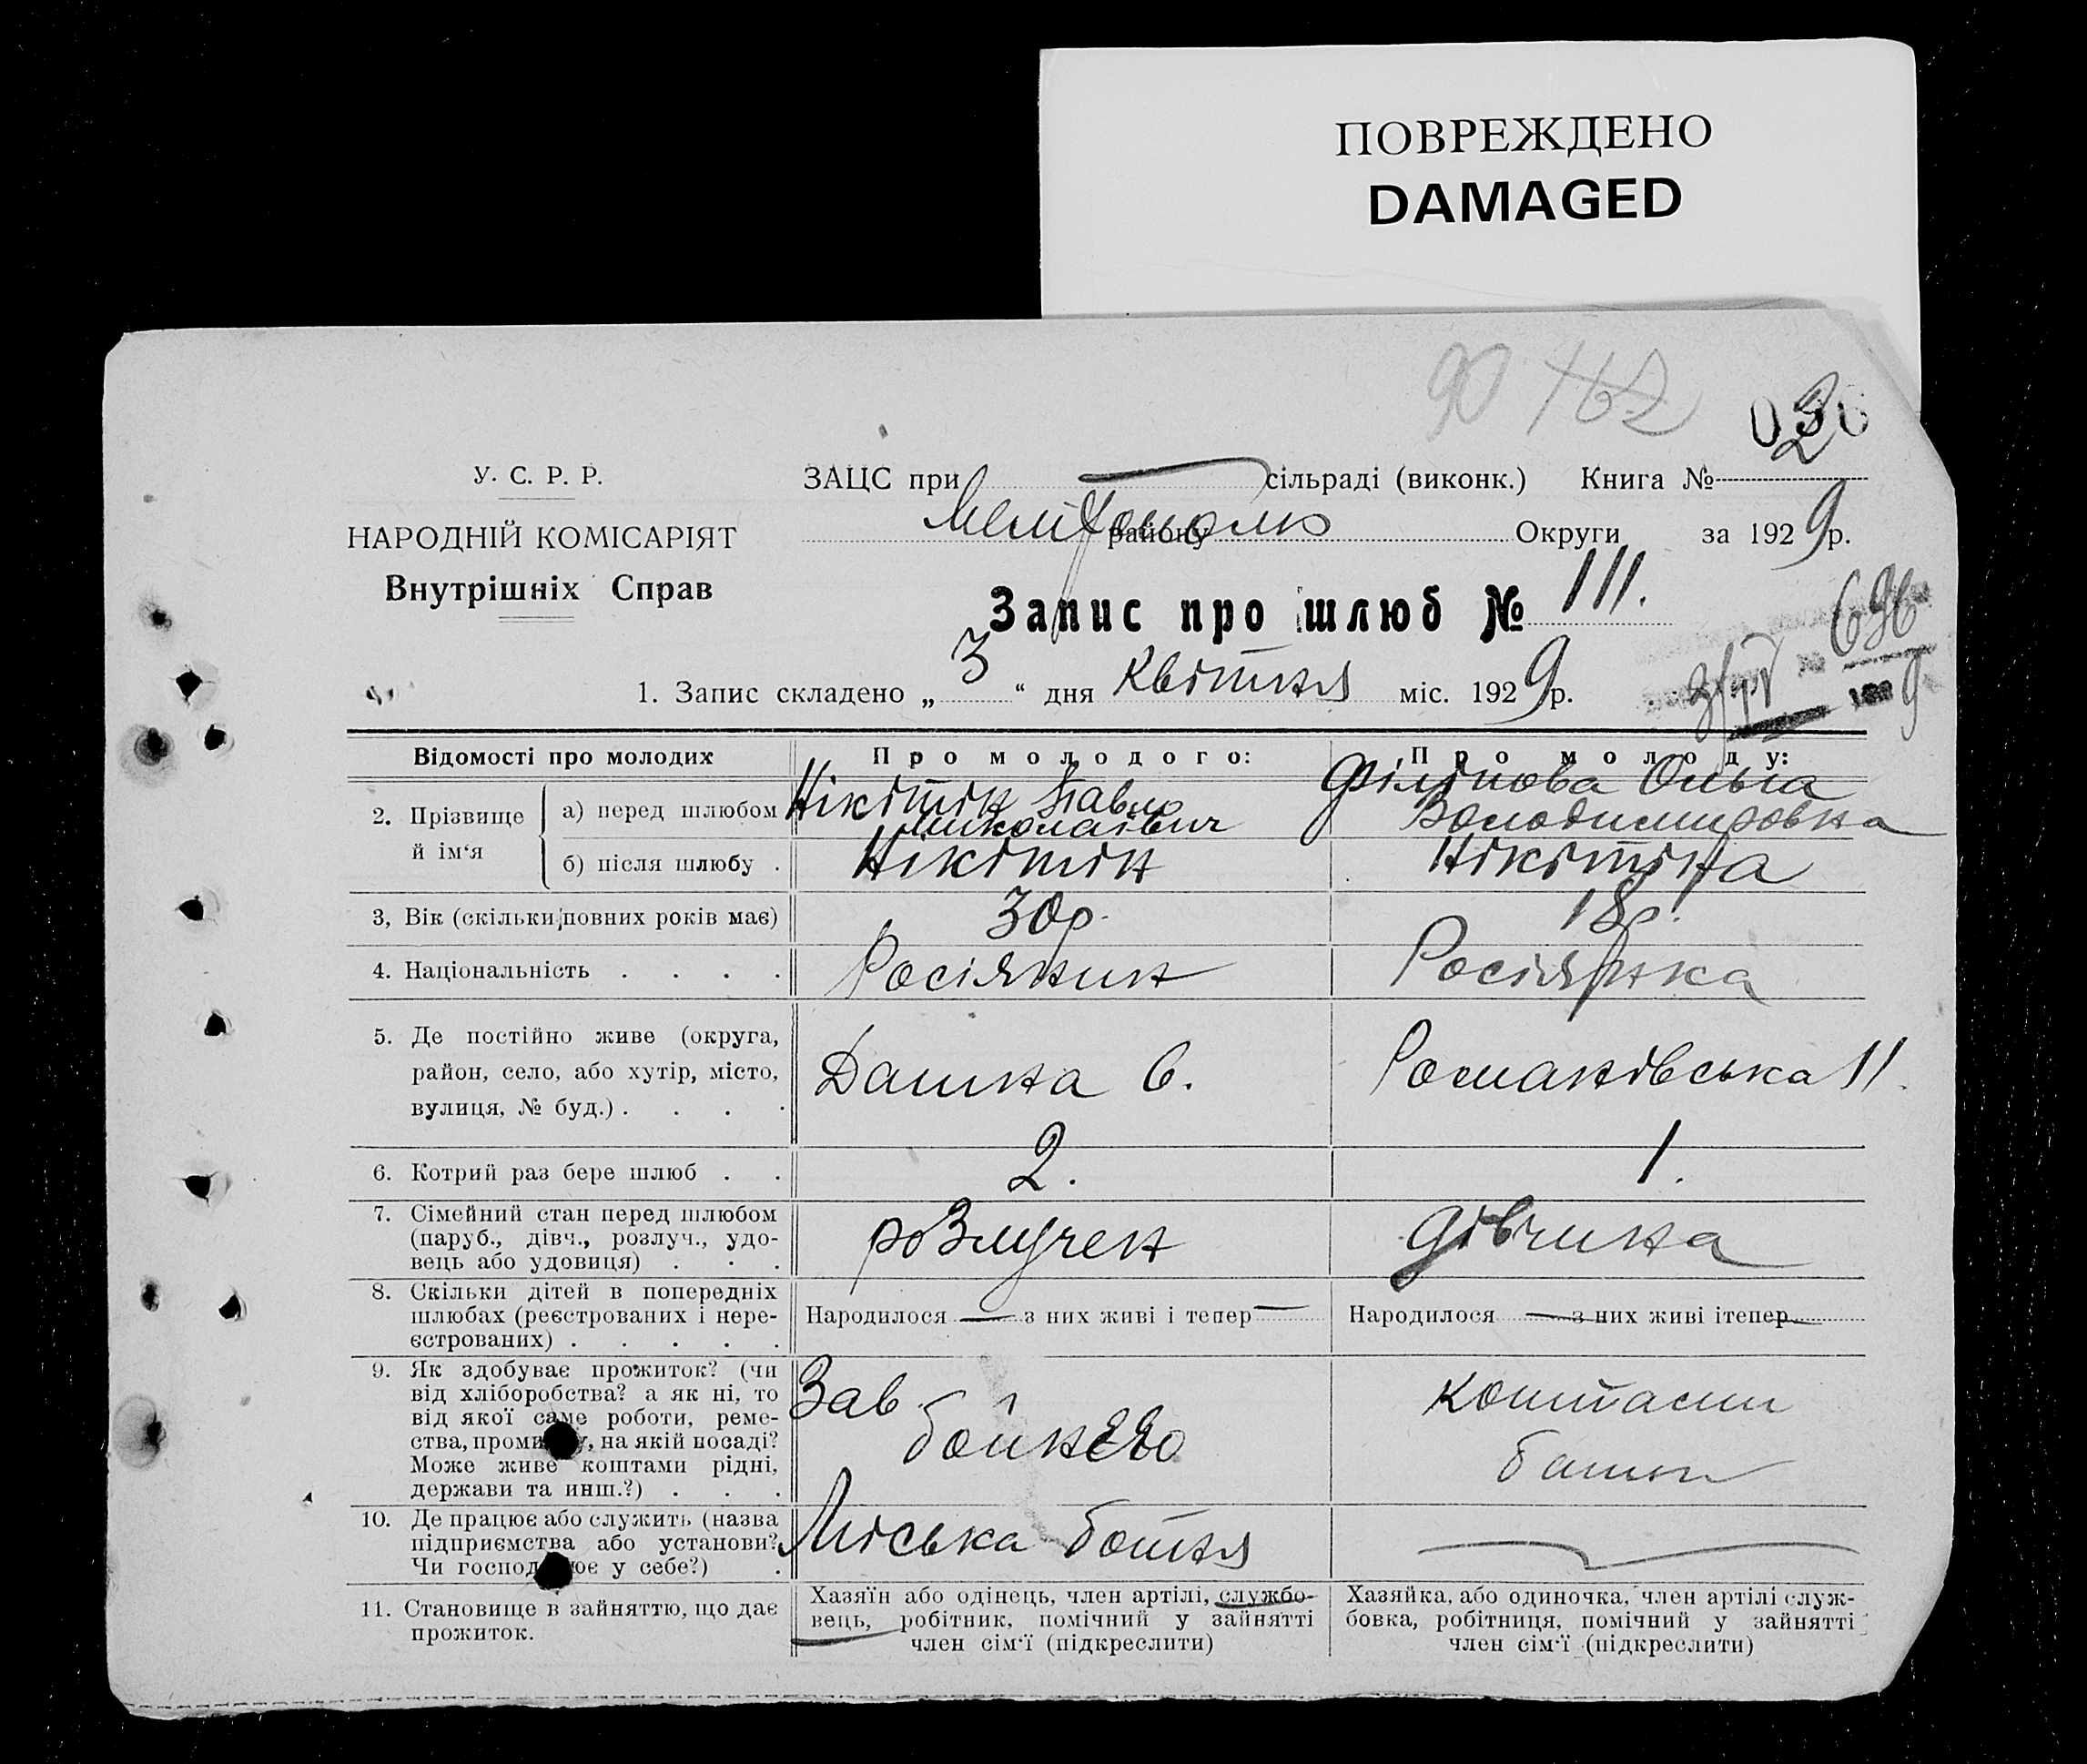 ПОВРЕЖДЕНО
DAMAGED
90 162
У. С. Р. Р.
НАРОДНІЙ КОМІСАРІЯТ
Внутрішніх Справ
ЗАЦС при сільраді (виконк.) Книга №
району Округи за 1929 р.
Запис про шлюб № 111.
696
1. Запис складено „ 3 “ дня Квітня міс. 1929 р.
Відомості про молодих
Про молодого:
Про молоду:
2. Прізвище й ім‘я
а) перед шлюбом
Нікітін Павло
Миколаївич
Філіпова Ольга
Володимировна
б) після шлюбу .
Нікітін
Нікітіна
3, Вік (скільки повних років має)
30р.
18р.
4. Національність . . . .
Росіянин
Росіянка
5. Де постійно живе (округа,
район, село, або хутір, місто,
вулиця, № буд.) . . . .
6.
Романівська 11.
6. Котрий раз бере шлюб . .
2.
1.
7. Сімейний стан перед шлюбом
(паруб., дівч., розлуч., удо-
вець або удовиця) . . .
розлучен
дівчина
8. Скільки дітей в попередніх
шлюбах (реєстрованих і нере-
єстрованих) . . . . .
Народилося — з них живі і тепер —
Народилося — з них живі ітепер —
9. Як здобуває прожиток? (чи
від хліборобства? а як ні, то
від якої саме роботи, реме-
ства, промислу, на якій посаді?
Може живе коштами рідні,
держави та инш.?) . . .
Зав.
бойнею
коштами
батьк
10. Де працює або служить (назва
підприємства або установи?
Чи господарює у себе?) .
Міська бойня
—
11. Становище в зайняттю, що дає
прожиток.
Хазяїн або одінець, член артілі, службо-
вець, робітник, помічний у зайнятті
член сім‘ї (підкреслити)
Хазяйка, або одиночка, член артілі служ-
бовка, робітниця, помічний у зайнятті
член сім‘ї (підкреслити)